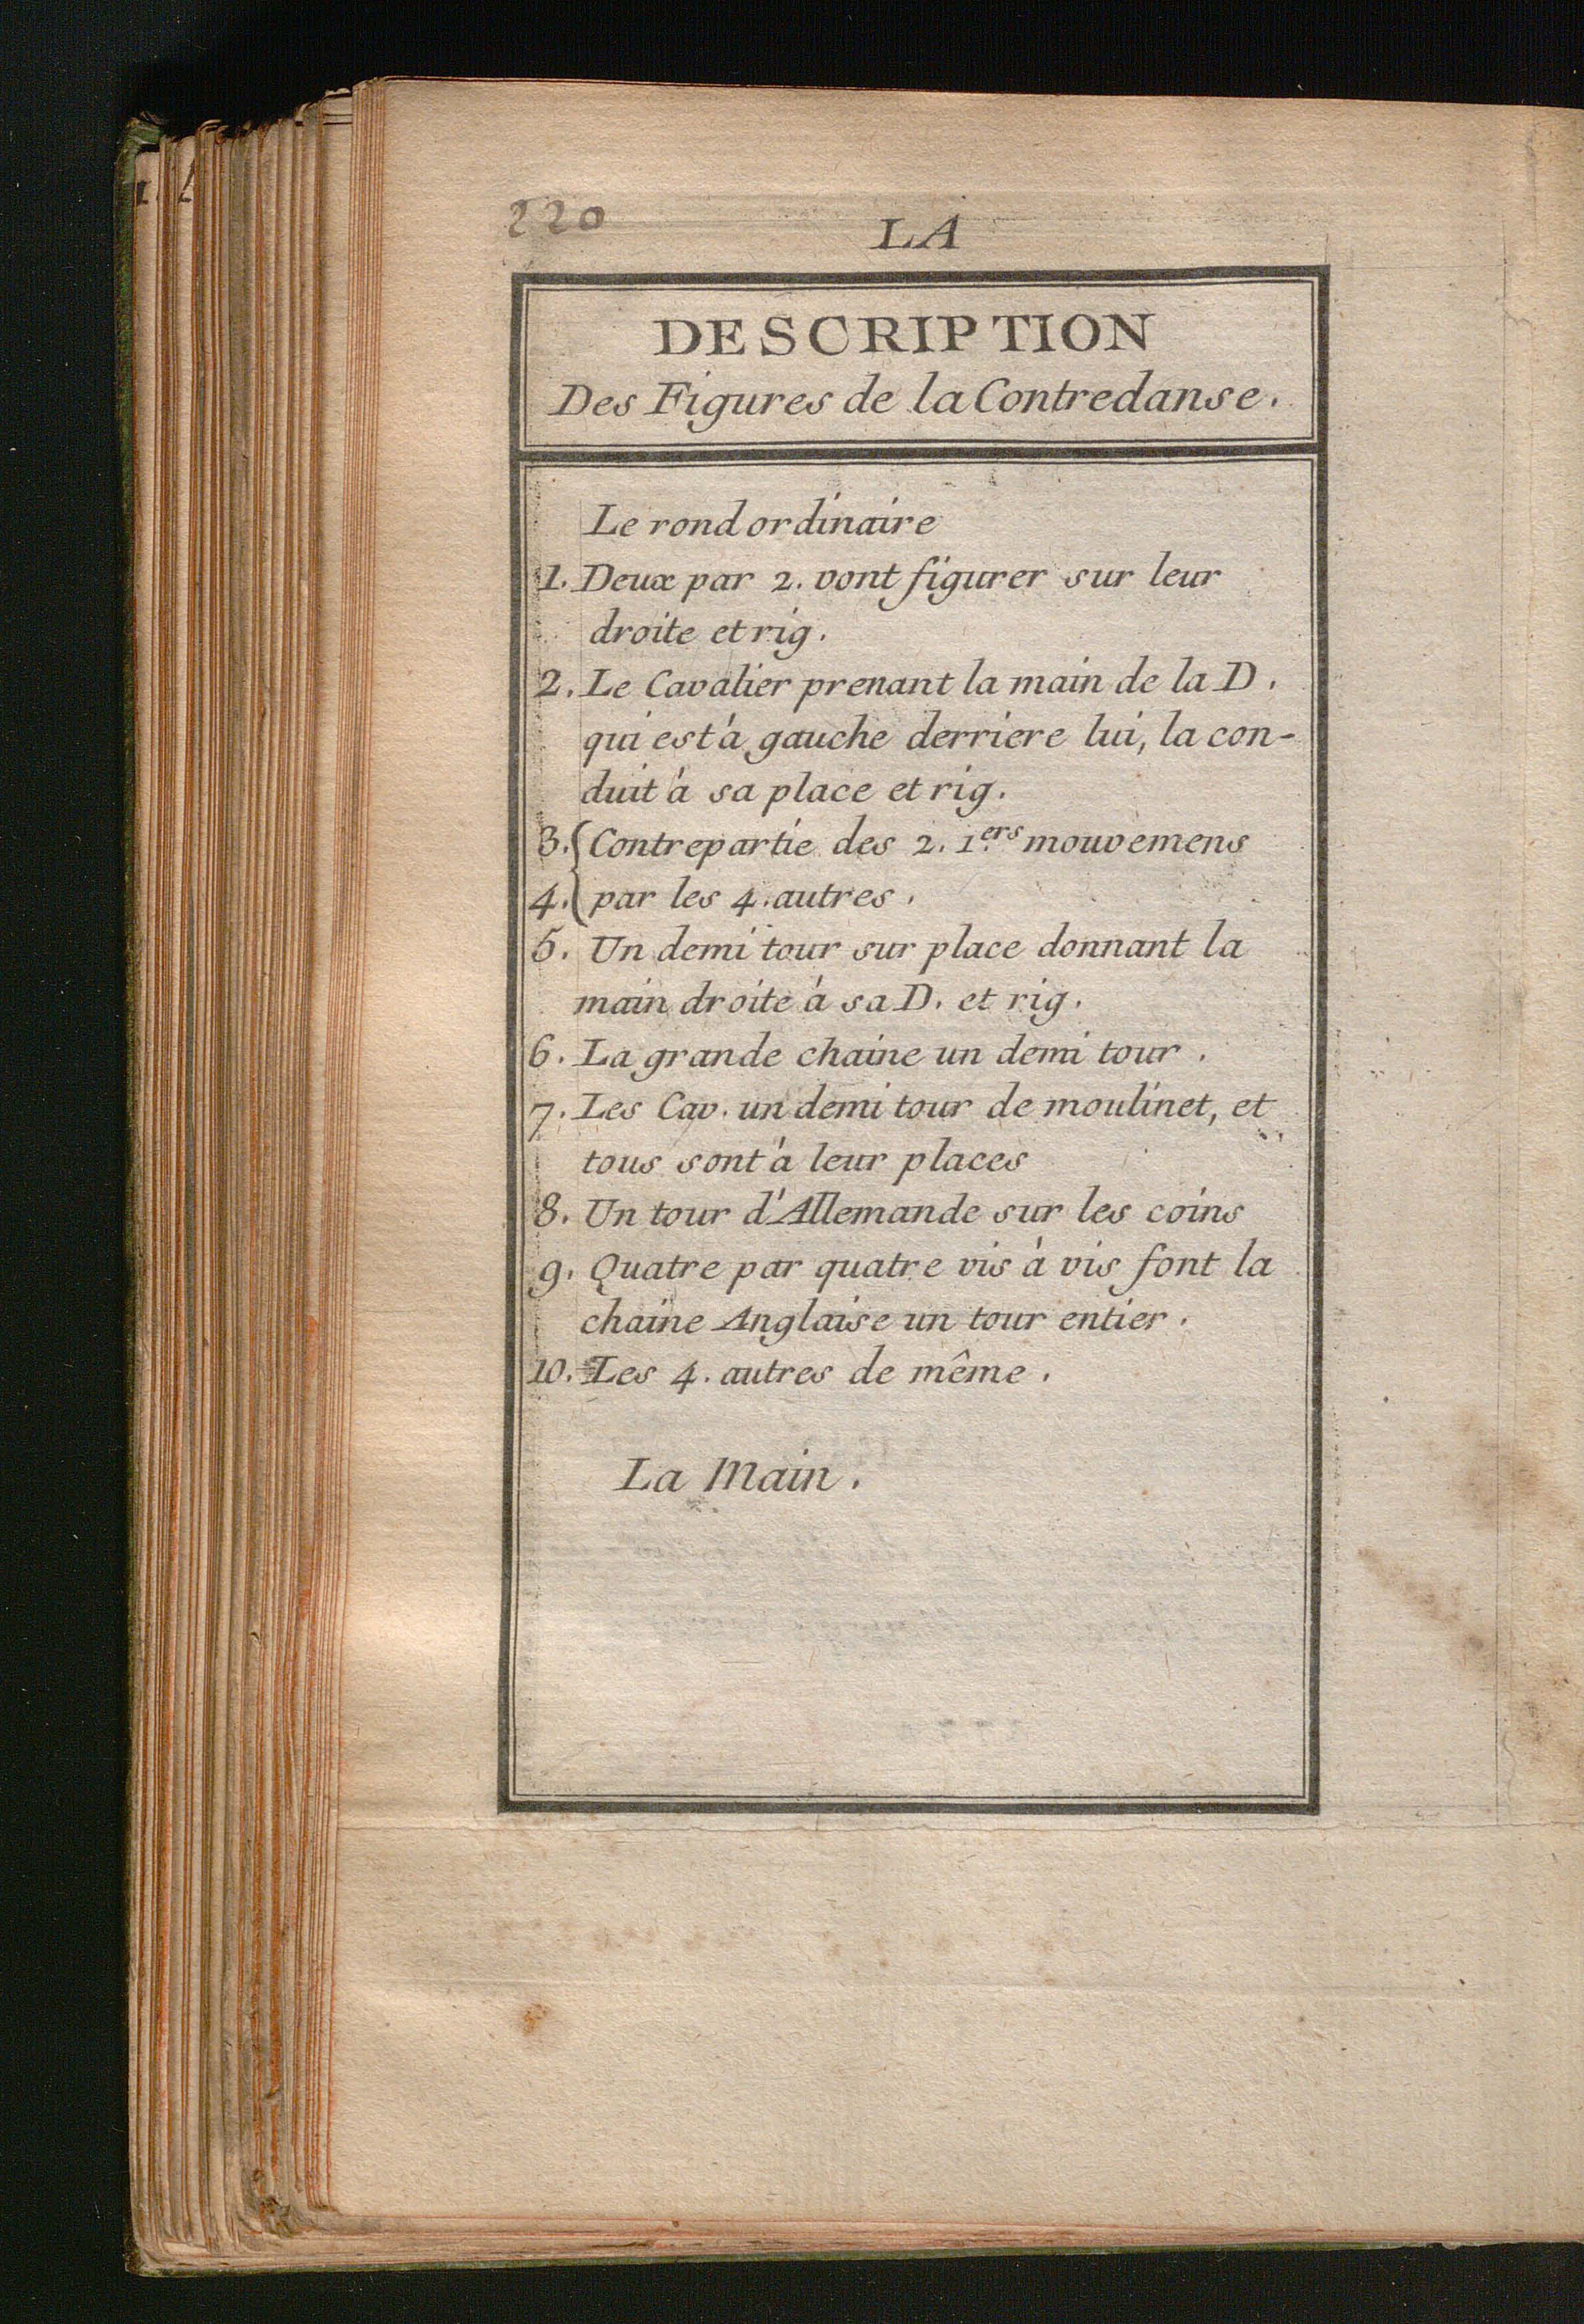 220
LA
DESCRIPTION
Des Figures de la Contredanse.
Le rond ordinaire
1. Deux par 2. vont figurer sur leur
droite et rig.
2. Le Cavalier prenant la main de la D.
qui est à gauche derriere lui, la con-
duit à sa place et rig.
3. { Contrepartie des 2. 1.ers mouvemens
4. { par les 4. autres.
5. Un demi tour sur place donnant la
main droite à sa D. et rig.
6. La grande chaine un demi tour.
7. Les Cav. un demi tour de moulinet, et
tous sont à leur places
8. Un tour d'Allemande sur les coins
9. Quatre par quatre vis à vis font la
chaine Anglaise un tour entier.
10. Les 4. autres de même.
La Main.